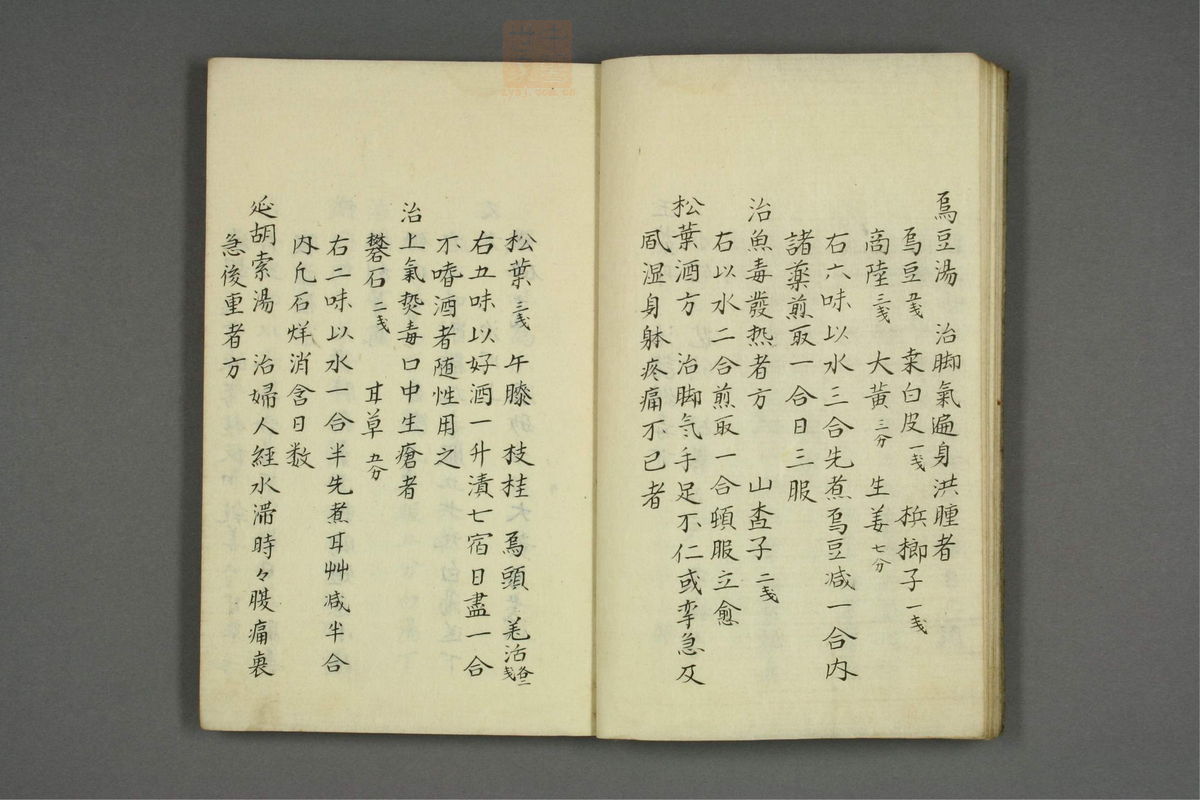 烏豆湯　治脚氣遍身洪腫者
烏豆 五戔　桒白皮 一戔　梹榔子 一戔
商陸 三戔　大黄 三分　生姜 七分
右六味以水三合先煮烏豆减一合内
諸藥煎取一合日三服
治魚毒發热者方　山査子 二戔
右以水二合煎取一合頓服立愈
松葉酒方　治脚气手足不仁或挛急及
風湿身躰疼痛不已者
松葉 三戔　午膝　枝桂　烏頭　羌活 各二戔
右五味以好酒一升漬七宿日盡一合
不嗜酒者随性用之
治上氣熱毒口中生瘡者
礬石 二戔　耳草 五分
右二味以水一合半先煮耳艸减半合
内凡石烊消含日数
延胡索湯　治婦人經水滞時々腹痛裏
急後重者方